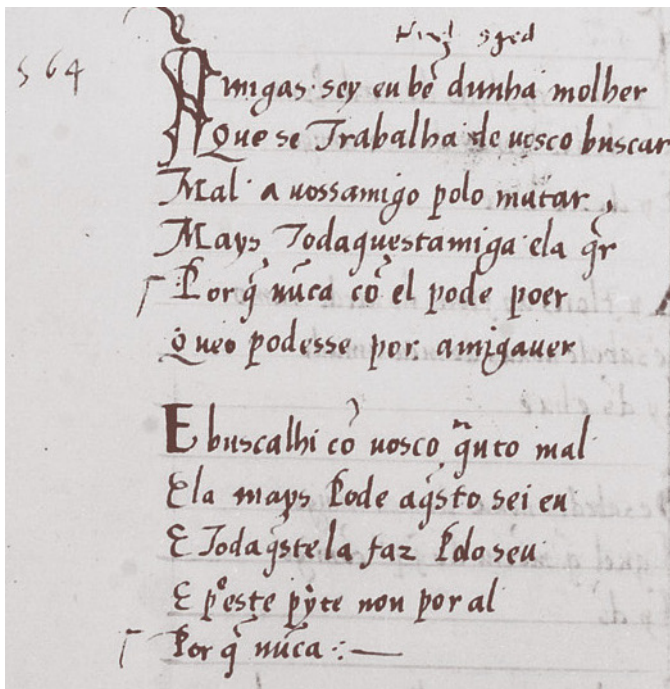 564
Amigas sey eu bē dunha molher
Que se Trabalha de uosco buscar
Mal a uossamigo polo matar
Mays Todaquestamiga ela q̄r
Porq̄ nūca cō el pode poer
Queo podesse por amigauer
E buscalhi cō uosco q̄nto mal
Ela mays Pode aq̄sto sei eu
E Todaq̄stela faz Polo seu
E p̄ este p̄yto non por al
Por q̄ nūca :—